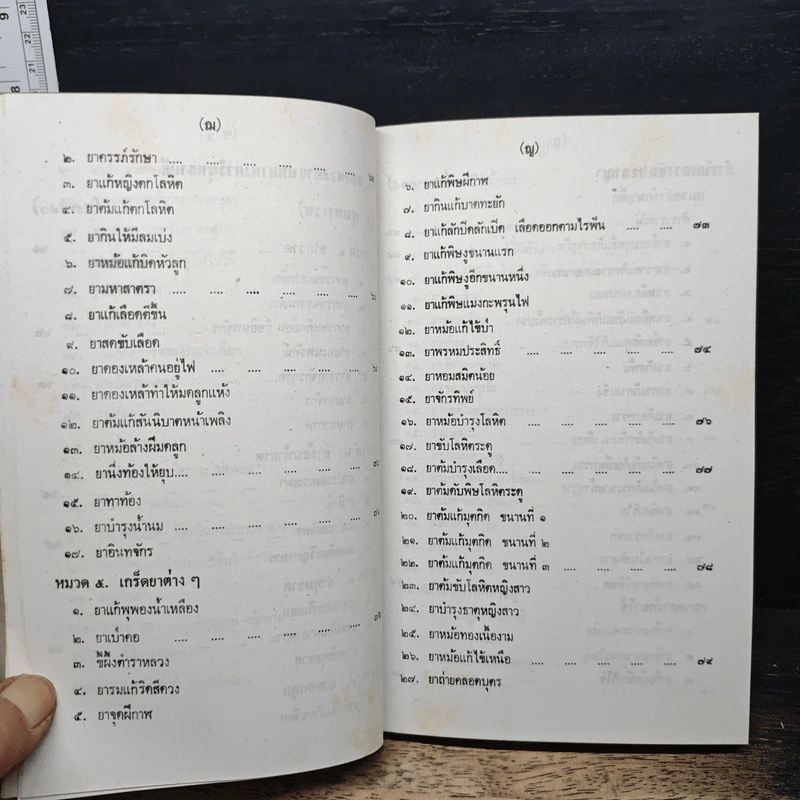 (ฌ)
๒. ยาครรภ์รักษา .... .... .... .... ....
๓. ยาแก้หญิงตกโลหิต
๔. ยาต้มแก้ตกโลหิต
๕. ยากินให้มีลมเบ่ง
๖. ยาหม้อแก้บิดหัวลูก
๗. ยามหาสาตรา .... .... .... .... ....
๘. ยาแก้เลือดตีขึ้น
๙. ยาสดขับเลือด
๑๐. ยาดองเหล้าคนอยู่ไฟ .... .... .... ....
๑๑. ยาดองเหล้าทำให้มดลูกแห้ง
๑๒. ยาต้มแก้สันนิบาตหน้าเพลิง
๑๓. ยาหม้อล้างฝีมดลูก
๑๔. ยานึ่งท้องให้ยุบ.... .... .... .... ....
๑๕. ยาทาท้อง
๑๖. ยาบำรุงน้ำนม .... .... .... .... ....
๑๗. ยาอินทจักร
หมวด ๕. เกร็ดยาต่าง ๆ
๑. ยาแก้พุพองน้ำเหลือง
๒. ยาเป่าคอ .... .... .... .... ....
๓. ขี้ผึ้งตำราหลวง
๔. ยารมแก้ริดสีดวง
๕. ยาจุดฝีกาพ
(ญ)
๖. ยาแก้พิษฝีกาพ
๗. ยากินแก้บาดทะยัก
๘. ยาแก้ลักปิดลักเปิด เลือดออกตามไรฟัน .... .... ๗๓
๙. ยาแก้พิษงูขนานแรก
๑๐. ยาแก้พิษงูอีกขนานหนึ่ง
๑๑. ยาแก้พิษแมงกะพรุนไฟ
๑๒. ยาหม้อแก้ไข้ป่า
๑๓. ยาพรหมประสิทธิ์ .... .... .... .... .... ๗๔
๑๔. ยาหอมสมิตน้อย
๑๕. ยาจักรทิพย์
๑๖. ยาหม้อบำรุงโลหิต .... .... .... .... .... ๗๖
๑๗. ยาขับโลหิตระดู
๑๘. ยาต้มบำรุงเลือด.... .... .... .... .... ๗๗
๑๙. ยาต้มดับพิษโลหิตระดู
๒๐. ยาต้มแก้มุตกิด ขนานที่ ๑
๒๑. ยาต้มแก้มุตกิด ขนานที่ ๒
๒๒. ยาต้มแก้มุตกิด ขนานที่ ๓ .... .... .... .... ๗๘
๒๓. ยาต้มขับโลหิตหญิงสาว
๒๔. ยาบำรุงธาตุหญิงสาว
๒๕. ยาหม้อทองเนื้องาม
๒๖. ยาหม้อแก้ไข้เหนือ .... .... .... .... .... ๗๙
๒๗. ยาถ่ายคลอดบุตร